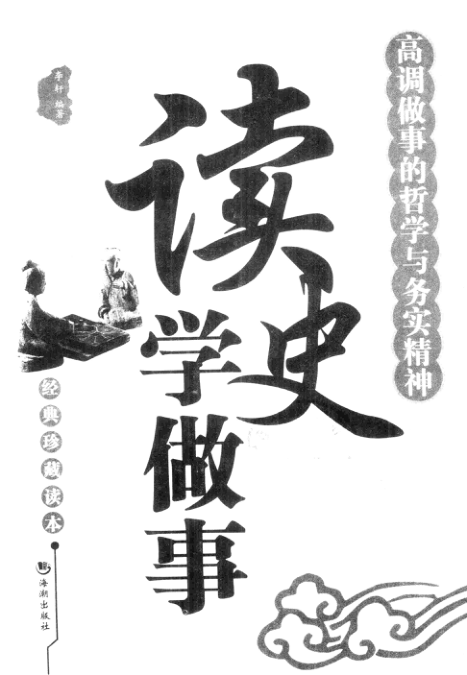 高调做事的哲学与务实精神
李轩 编著
读史
学做事
经典珍藏读本
海潮出版社